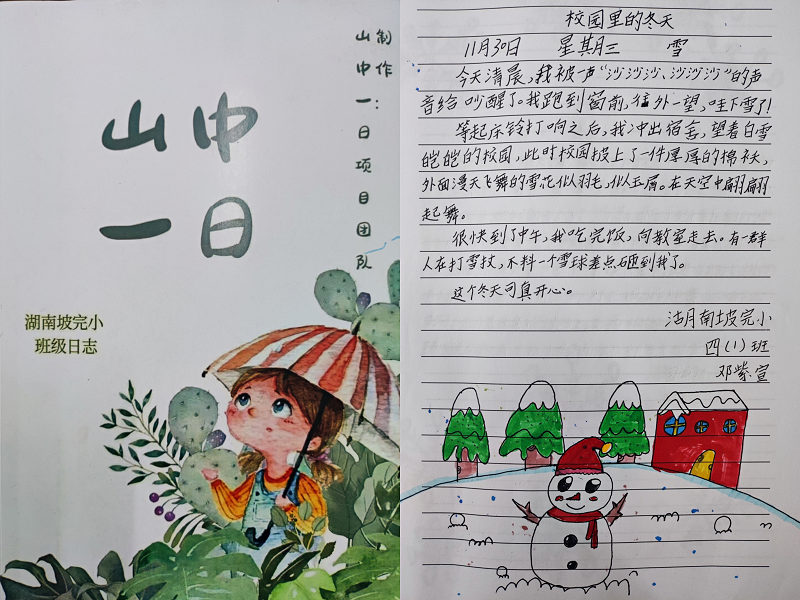 山中
一日
制作：
山中一日项目团队
湖南坡完小
班级日志
校园里的冬天
11月30日 星期三 雪
今天清晨，我被一声“沙沙沙、沙沙沙”的声
音给吵醒了。我跑到窗前，往外一望，哇下雪了！
等起床铃打响之后，我冲出宿舍，望着白雪
皑皑的校园，此时校园披上了一件厚厚的棉袄，
外面漫天飞舞的雪花似羽毛，似玉屑。在天空中翩翩
起舞。
很快到了中午，我吃完饭，向教室走去。有一群
人在打雪仗，不料一个雪球差点砸到我了。
这个冬天可真开心。
沽月南坡完小
四（1）班
邓紫宣